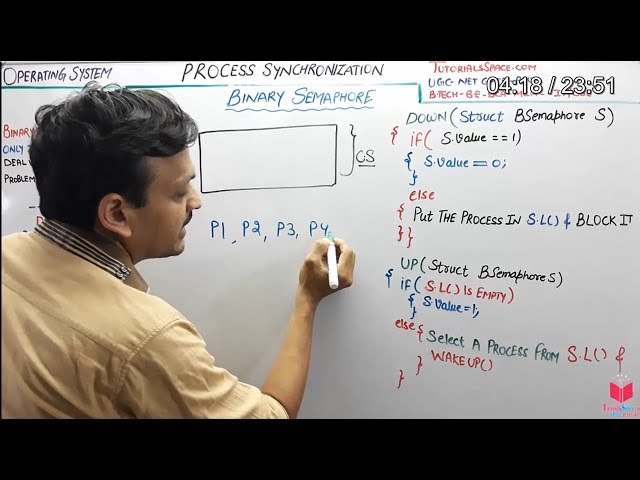 OPERATING SYSTEM
PROCESS SYNCHRONIZATION
TUTORIALSSPACE.COM
04:18 / 23:51
BINARY SEMAPHORE
BINARY
ONLY
DEAL
PROBLEM
CS
P1, P2, P3, P4,
DOWN (Struct BSemaphore S)
{ if( S.value == 1)
{ S.value = 0;
}
else
{ Put THE PROCESS IN S.L() & BLOCK IT
} }
UP (Struct BSemaphore S)
{ if( S.L() IS EMPTY)
{ S.value=1;
}
else { Select A PROCESS FROM S.L() &
} WAKEUP()
}